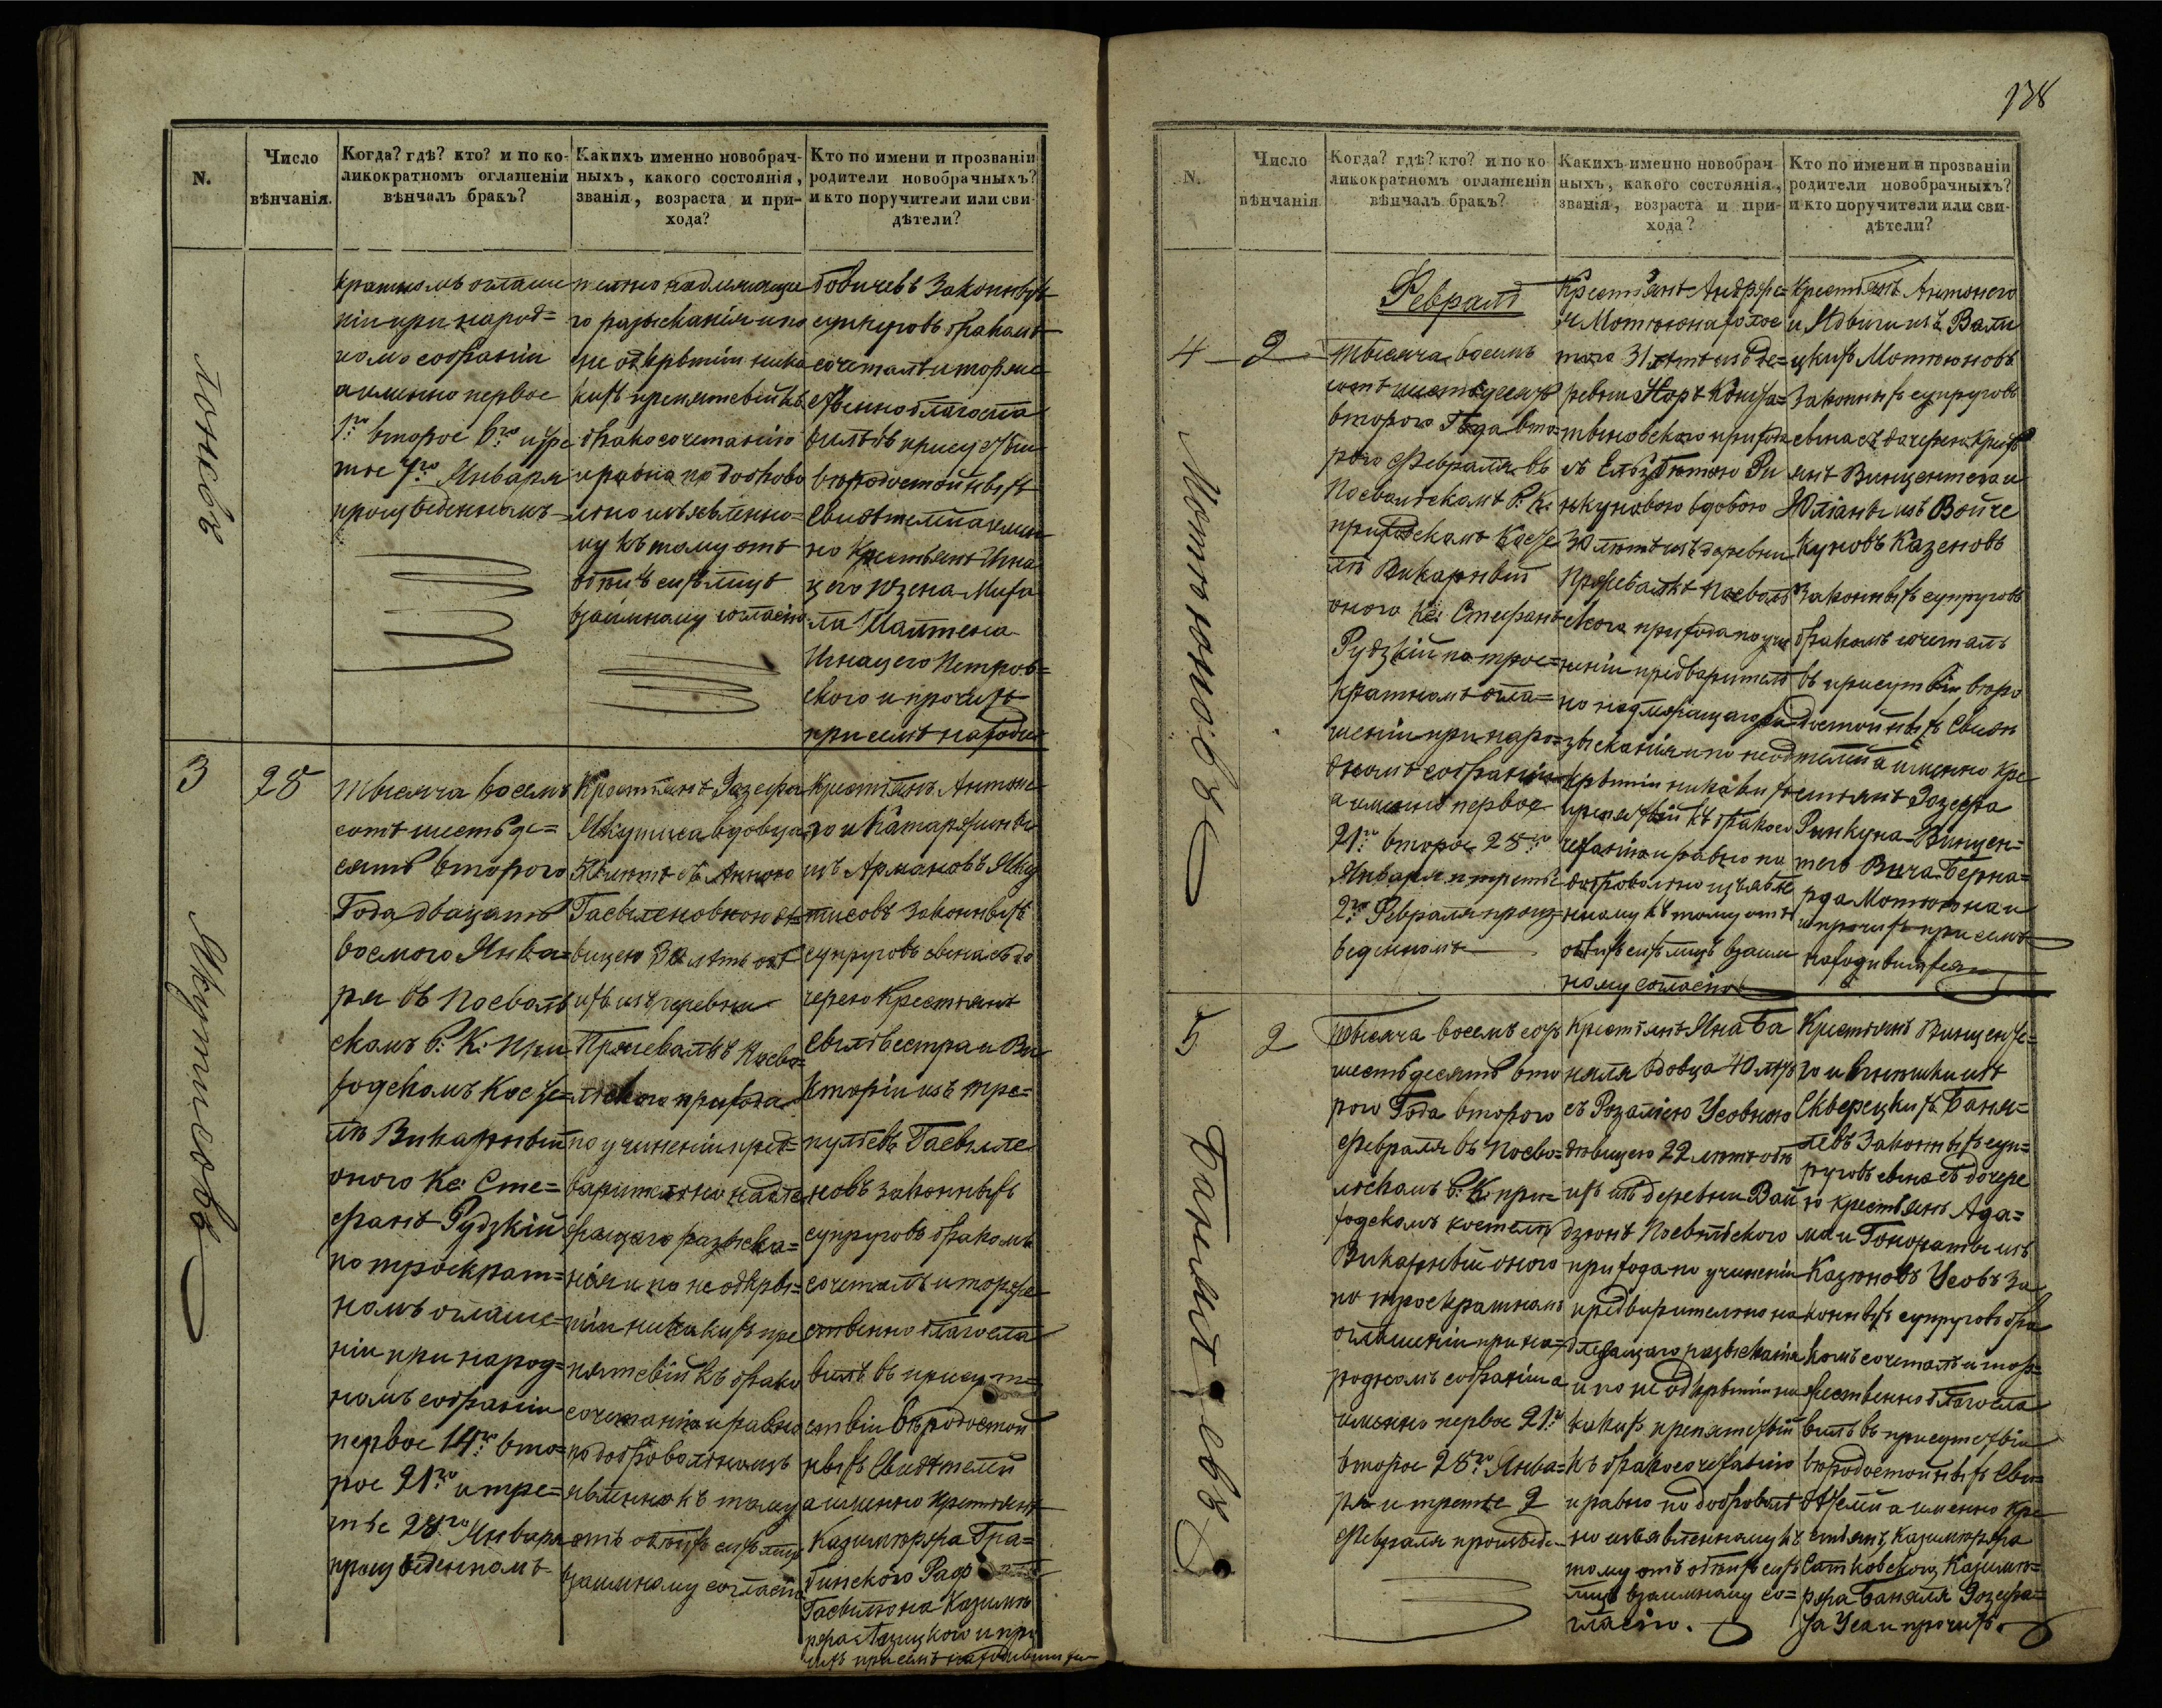 138
N.
Число
вѣнчанія.
Когда? гдѣ? кто? и по ко-
ликократномъ оглашеніи
вѣнчалъ бракъ?
Какихъ именно новобрач-
ныхъ, какого состоянія,
званія, возраста и при-
хода?
Кто по имени и прозванію
родители новобрачныхъ?
и кто поручители или сви-
дѣтели?
кратномъ оглаше
ніи при народ=
номъ собраніи
а именно первое
1го второе 6го и тре
тіе 7го Января
произведенномъ
го разысканія и по
не открытіи ника
кихъ препятствій къ
бракосочетанію
и равно по доброво
льно изъявленно=
му къ тому отъ
обѣихъ сихъ лицъ
взаимному согласію
бовичевъ Законныхъ
супруговъ бракомъ
сочеталъ и торже
ственно благосла
вилъ въ присуствіи
вюродостойныхъ
Свидѣтелей а имен
но Крестьянъ Игна
цего Юзена Миха
ла
Игнацего Петров=
ского и прочихъ
при семъ находи
3
28
Якутисовъ
Тысяча восемь
сотъ шестьде=
сятъ второго
Года двацать
восмого Янва=
ря въ Посволь
скомъ Р: К: При
ходскомъ Косте=
лѣ Викарный
оного Кс: Сте=
фанъ Рудзкій
по троекрат=
номъ оглаше=
ніи при народ=
номъ собраніи
первое 14го вто=
рое 21го и тре=
тье 28го Января
произведенномъ
Крестьянъ Іозефа
Якутиса вдовца
лѣтъ съ Анною
Гасюленовною дѣ
вицею лѣтъ обѣ
ихъ изъ деревни
Посво=
льскаго прихода
по учиненіи пред=
варительно надле
жащаго разыска=
нія и по не откры=
тіи никакихъ пре
пятствій къ брако
сочетанію и равно
по добровольно изъ
явленно къ тому
отъ обѣихъ сихъ лицъ
взаимному согласію
Крестьянъ Антоне
го и Катаржины
изъ Армановъ Яку
тисовъ Законныхъ
супруговъ сына съ до
черею Крестьянъ
Сильвестра и Ви
кторіи изъ Тре=
пульевъ Гасюле
новъ законныхъ
супруговъ бракомъ
сочеталъ и торже
ственно благосла
вилъ въ присут=
ствіи вюродостой
ныхъ Свидѣтелей
а именно крестьянъ
Казимержа Гра=
бинского
Гасюлюна Казими
ржа и про
чихъ при семъ находившихся
N.
Число
вѣнчанія
Когда? гдѣ? кто? и по ко
ликократномъ оглашеніи
вѣнчалъ бракъ?
Какихъ именно новобрач
ныхъ, какого состоянія,
званія, возраста и при-
хода?
Кто по имени и прозваніи
родители новобрачныхъ?
и кто поручители или сви-
дѣтели?
4
2
Мотюновъ
Февраль
Тысяча восемь
сотъ шестьдесятъ
второго Года вто=
рого Февраля въ
Посвольскомъ Р. К.
приходскомъ Косте
лѣ Викарный
оного Кс: Стефанъ
Рудзкій по трое=
кратномъ огла=
шеніи при наро=
дномъ собраніи
а именно первое
21го второе 28го
Января и третье
2го Февраля произ=
веденномъ
Крестьянъ Андрже=
я Мотюна холос
того 31 лѣтъ изъ де=
ревни
прихода
съ Ельзбѣтою Ри
нкуновою вдовою
30 лѣтъ изъ деревни
Посволь
скаго прихода по учи
неніи предварительн
но надлежащаго ра
зысканія и по неот
крытіи никакихъ
препятствій къ бракосо
четанію и равно по
добровольно изъявле
нному къ тому отъ
обѣихъ сихъ лицъ взаим
ному согласію
Крестьянъ Антонего
и Ядвиги изъ Вали
цкихъ Мотюновъ
Законныхъ супруговъ
сына съ дочерью Кресть
янъ Винцентега и
Юліанны изъ Войче
куновъ Казеновъ
Законныхъ супруговъ
бракомъ сочеталъ
въ присутствіи вюро
достойныхъ Свидѣ
телей а именно Кре
стьянъ Іозефа
Ринкуна Винцен=
тего Берна=
рда Мотюна и
и прочихъ при семъ
находившихся
5
2
Тысяча восемь сотъ
шестьдесятъ вто
рого Года второго
Февраля въ Посво=
льскомъ Р. К. при=
ходскомъ костелѣ
Викарный оного
по троекратномъ
оглашеніи при на=
родномъ собраніи а
именно первое 21го
второе 28го Янва=
ря и третье 2
Февраля произведе
Крестьянъ Яна Ба
няля вдовца 40 лѣтъ
съ Розаліею Усовною
дѣвицею 22 лѣтъ обѣ
ихъ изъ деревни Вай
дзюнъ Посвольского
прихода по учиненіи
предварительно на
длежащаго разысканія
и по не открытіи ни
какихъ препятствій
къ бракосочетанію
и равно по доброволь
но изъявленному къ
тому отъ обѣихъ сихъ
лицъ взаимному со=
гласію.
Крестьянъ Винценте=
го и изъ
Скверецкихъ Баня=
левъ Законныхъ суп=
руговъ сына съ дочере
ю крестьянъ Ада=
ма и Гоноратты изъ
Казюновъ Усовъ За
конныхъ супруговъ бра
комъ сочеталъ и тор=
жественно благосла
вилъ въ присутствіи
вюродостойныхъ Сви=
дѣтелей а именно Кре
стьянъ Казимержа
Казими=
ржа Баняля Іозефа=
та Уса и прочихъ.